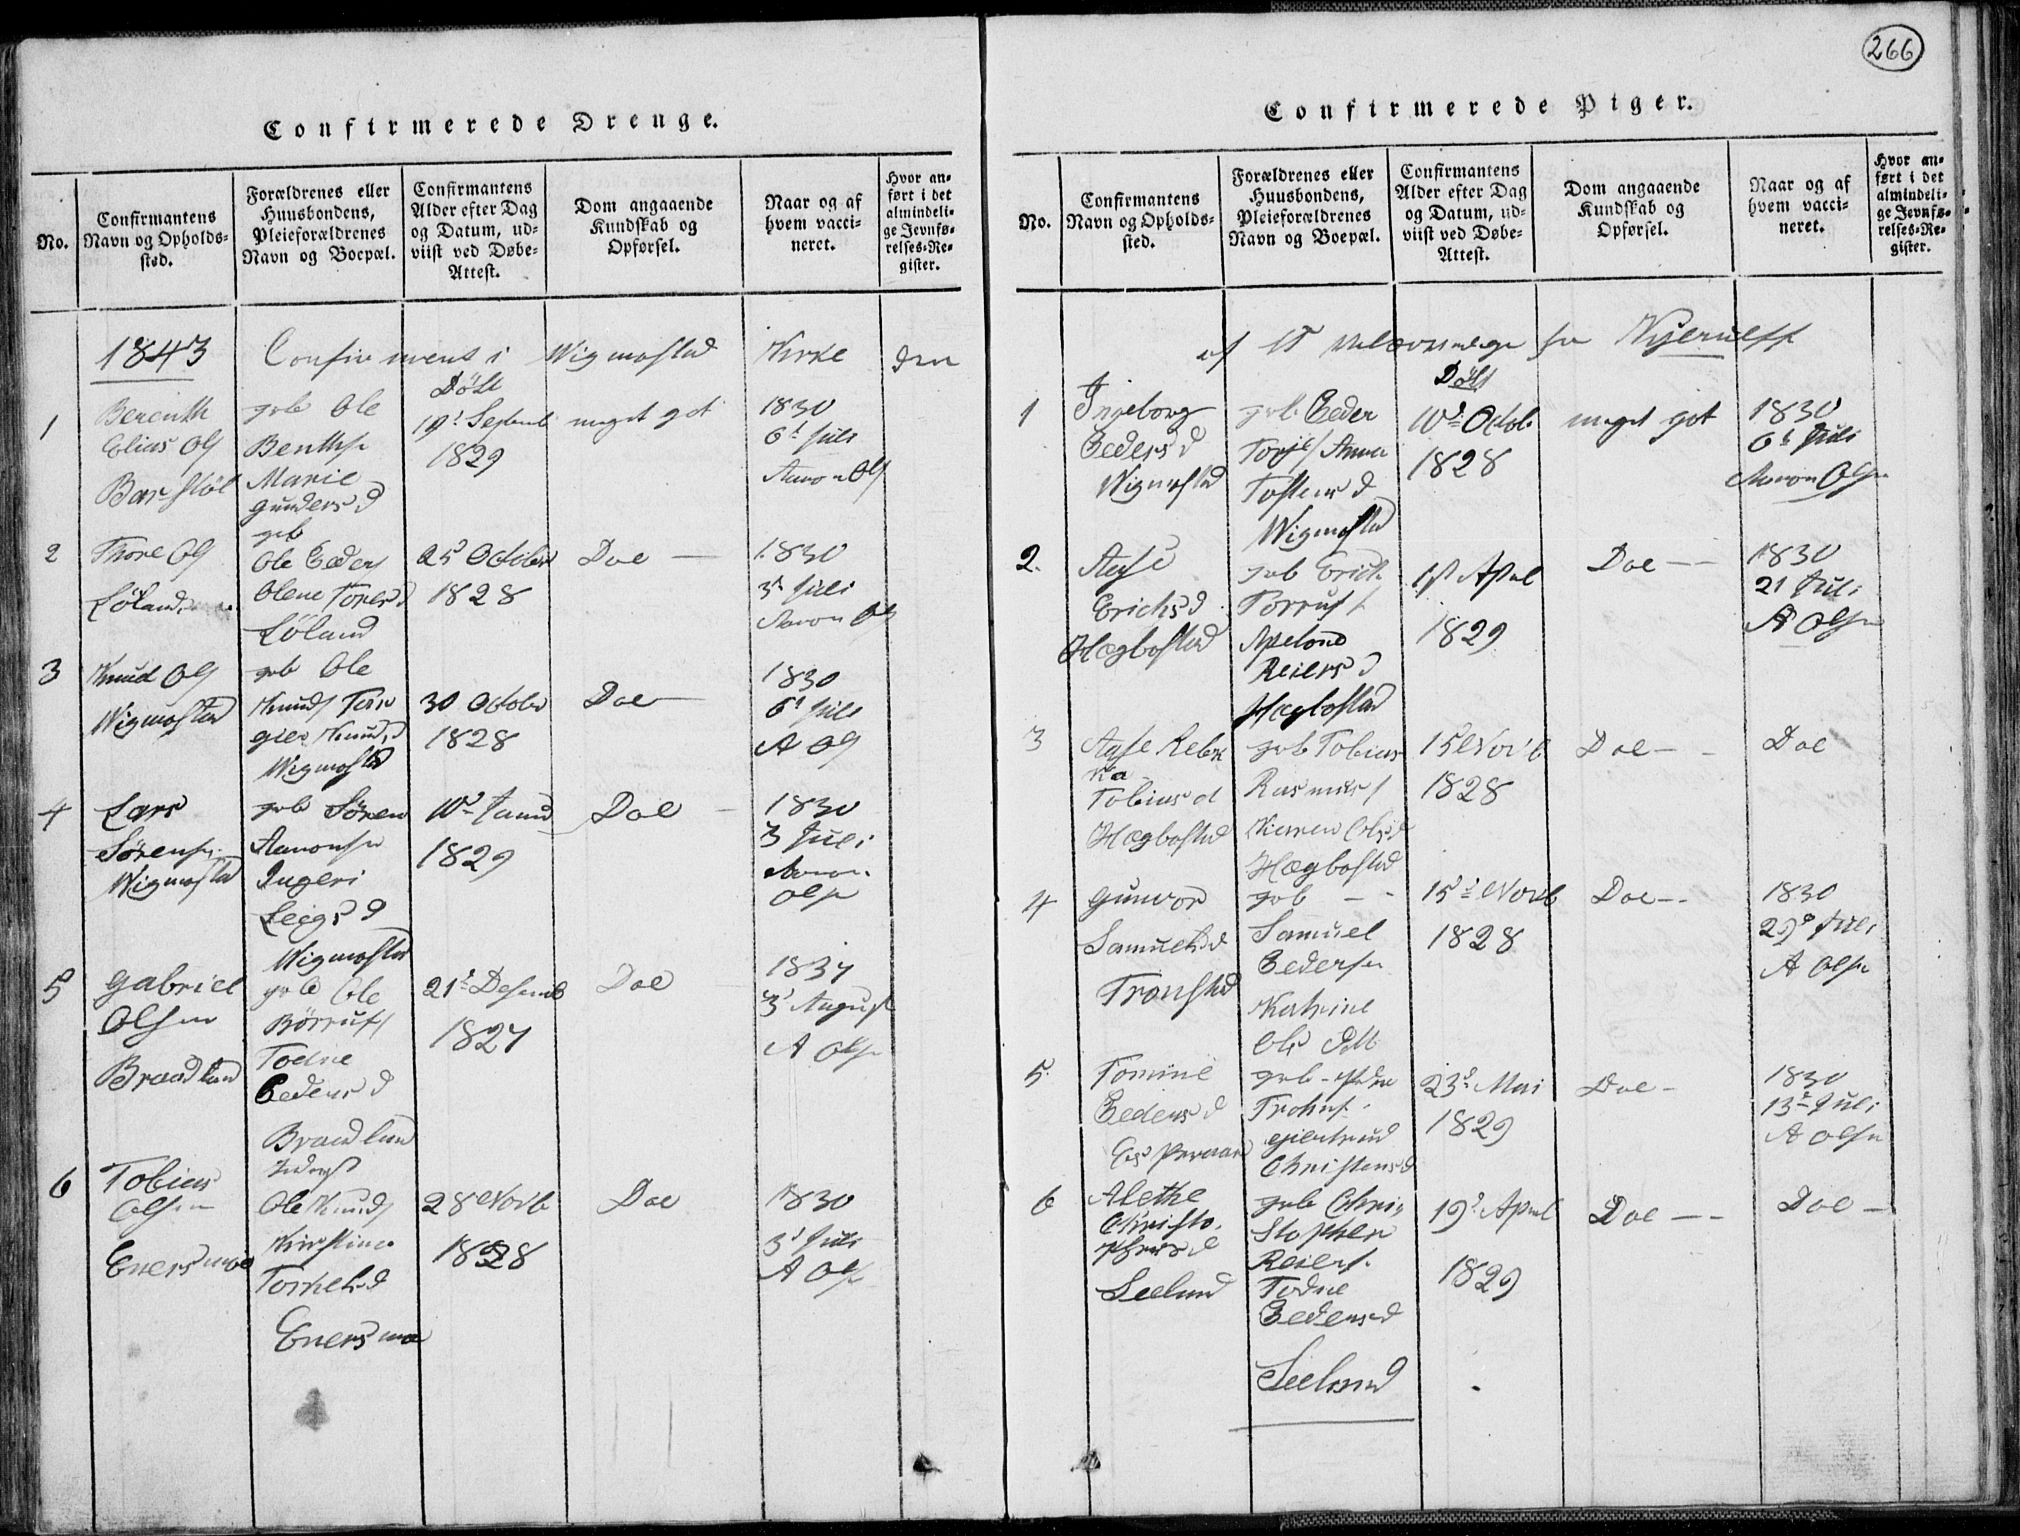 266
Confirmerede Drenge.
No.
Confirmantens
Navn og Opholds-
sted.
Forældrenes eller
Huusbondens,
Pleieforældrenes
Navn og Boepæl.
Confirmantens
Alder efter Dag
og Datum, ud-
viist ved Døbe-
Attest.
Dom angaaende
Kundskab og
Opførsel.
Naar og af
hvem vacci-
neret.
Hvor an-
ført i det
almindeli-
ge Jevnfø-
relses-Re-
gister.
1843 Wigmostad Kirke den
1
Berenth
Elias Ols
Barstøl
grb Ole
Benths
Marie
Gunders d
Døbt
19d Septemb
1829
meget got
1830
6d Juli
Aaron Ols
2
Thore Ols
Løland
grb
Ole Peders
Olene Tores d
Løland
25d October
1828
Doe —
1830
3d Juli
Aaron Ols
3
Knud Ols
Wigmostad
grb Ole
Knuds
Knuds d
Wigmostad
30 October
1828
Doe —
1830
6d Juli
A Ols
4
Lars
Sørens
Wigmostad
grb Søren
Aanonsen
Ingeri
Wigmostad
10d Janu
1829
Doe —
1830
3 Juli
Aaron
Olsn
5
Gabriel
Olsen
Braadland
grb Ole
Børrufs
Todne
Peders d
Braadland
21d Desemb
1827
Doe
3d August
A Olsn
6
Tobias
Olsen
Enersmoe
Inderst
Ole Knuds
Kirstine
Torkels d
Enersmoe
28 Novb
1828
Doe
1830
3d Juli
A Ols
Confirmerede Piger.
No.
Confirmantens
Navn og Opholds-
sted.
Forældrenes eller
Huusbondens,
Pleieforældrenes
Navn og Boepæl.
Confirmantens
Alder efter Dag
og Datum, ud-
viist ved Døbe-
Attest.
Dom angaaende
Kundskab og
Opførsel.
Naar og af
hvem vacci-
neret.
Hvor an-
ført i det
almindeli-
ge Jevnfø-
relses-Re-
gister.
af Kjerulff
1
Ingeborg
Peders d
Wigmostad
grb Peder
Torjes Anna
Tostens d
Wigmostad
Døbt
10d Octob
1828
meget got
1830
6d Juli
Aaron Olsn
2.
Aase
Erichs d
Hægbostad
grb Erich
Torrufs
Apelone
Reiers d
Hægbostad
1st Aprl
1829
Doe —
1830
21 Juli
A Olsn
3
Aase Rebek
ka
Tobias d
Hægbostad
grb Tobias
Rasmus
Karen Ols d
Hægbostad
15 Novb
1828
Doe —
Doe
4
Gunvor
Samuels d
Tronstad
grb —
Samuel
Pedersen
Katrine
Ols dtt
15d Novb
1828
Doe —
1830
29d Juli
A Olsn
5.
Tomine
Peders d
grb Peder
Trohns
Christens d
23d Mai
1829
Doe —
1830
13d Juli
A Olsn
6
Alethe
Christo-
phers d
Seeland
grb Chri-
stopher
Reiers
Todne
Peders d
Seeland
19d Aprel
1829
Doe —
Doe —